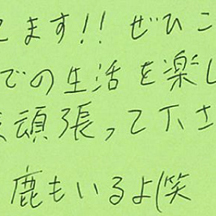 ます!! ぜひこ
での生活を楽し
頑張って下さ
鹿もいるよ(笑